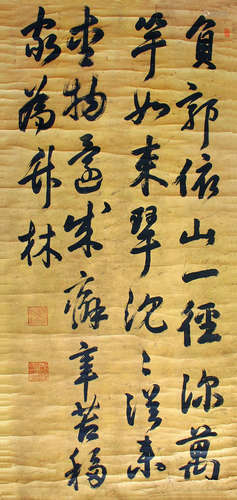 負郭依山一徑深萬
竿如束翠沈々從来
愛物成癖辛苦移
家為竹林